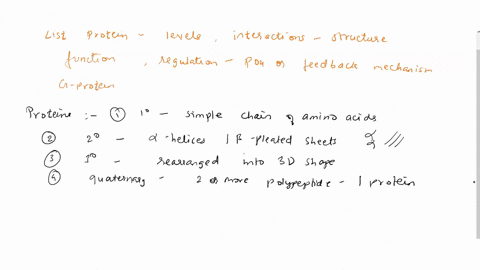 List Protein - levels, interactions - structure
function, regulation - PO4 or feedback mechanism
G-protein
Proteins :- ① 1° - simple chain of amino acids
② 2° - α-helices | β-pleated sheets
③ 3° - rearranged into 3D shape
④ quaternary - 2 or more polypeptide - 1 protein